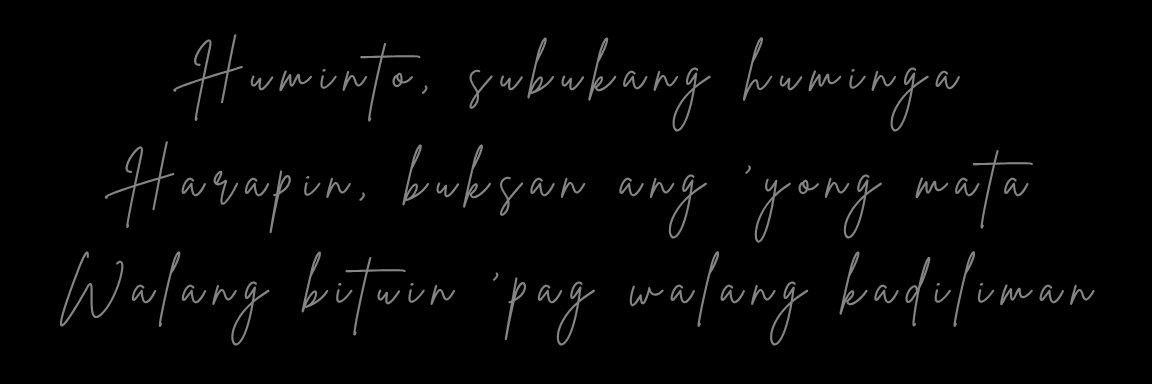 Huminto, subukang huminga
Harapin, buksan ang 'yong mata
Walang bituin 'pag walang kadiliman